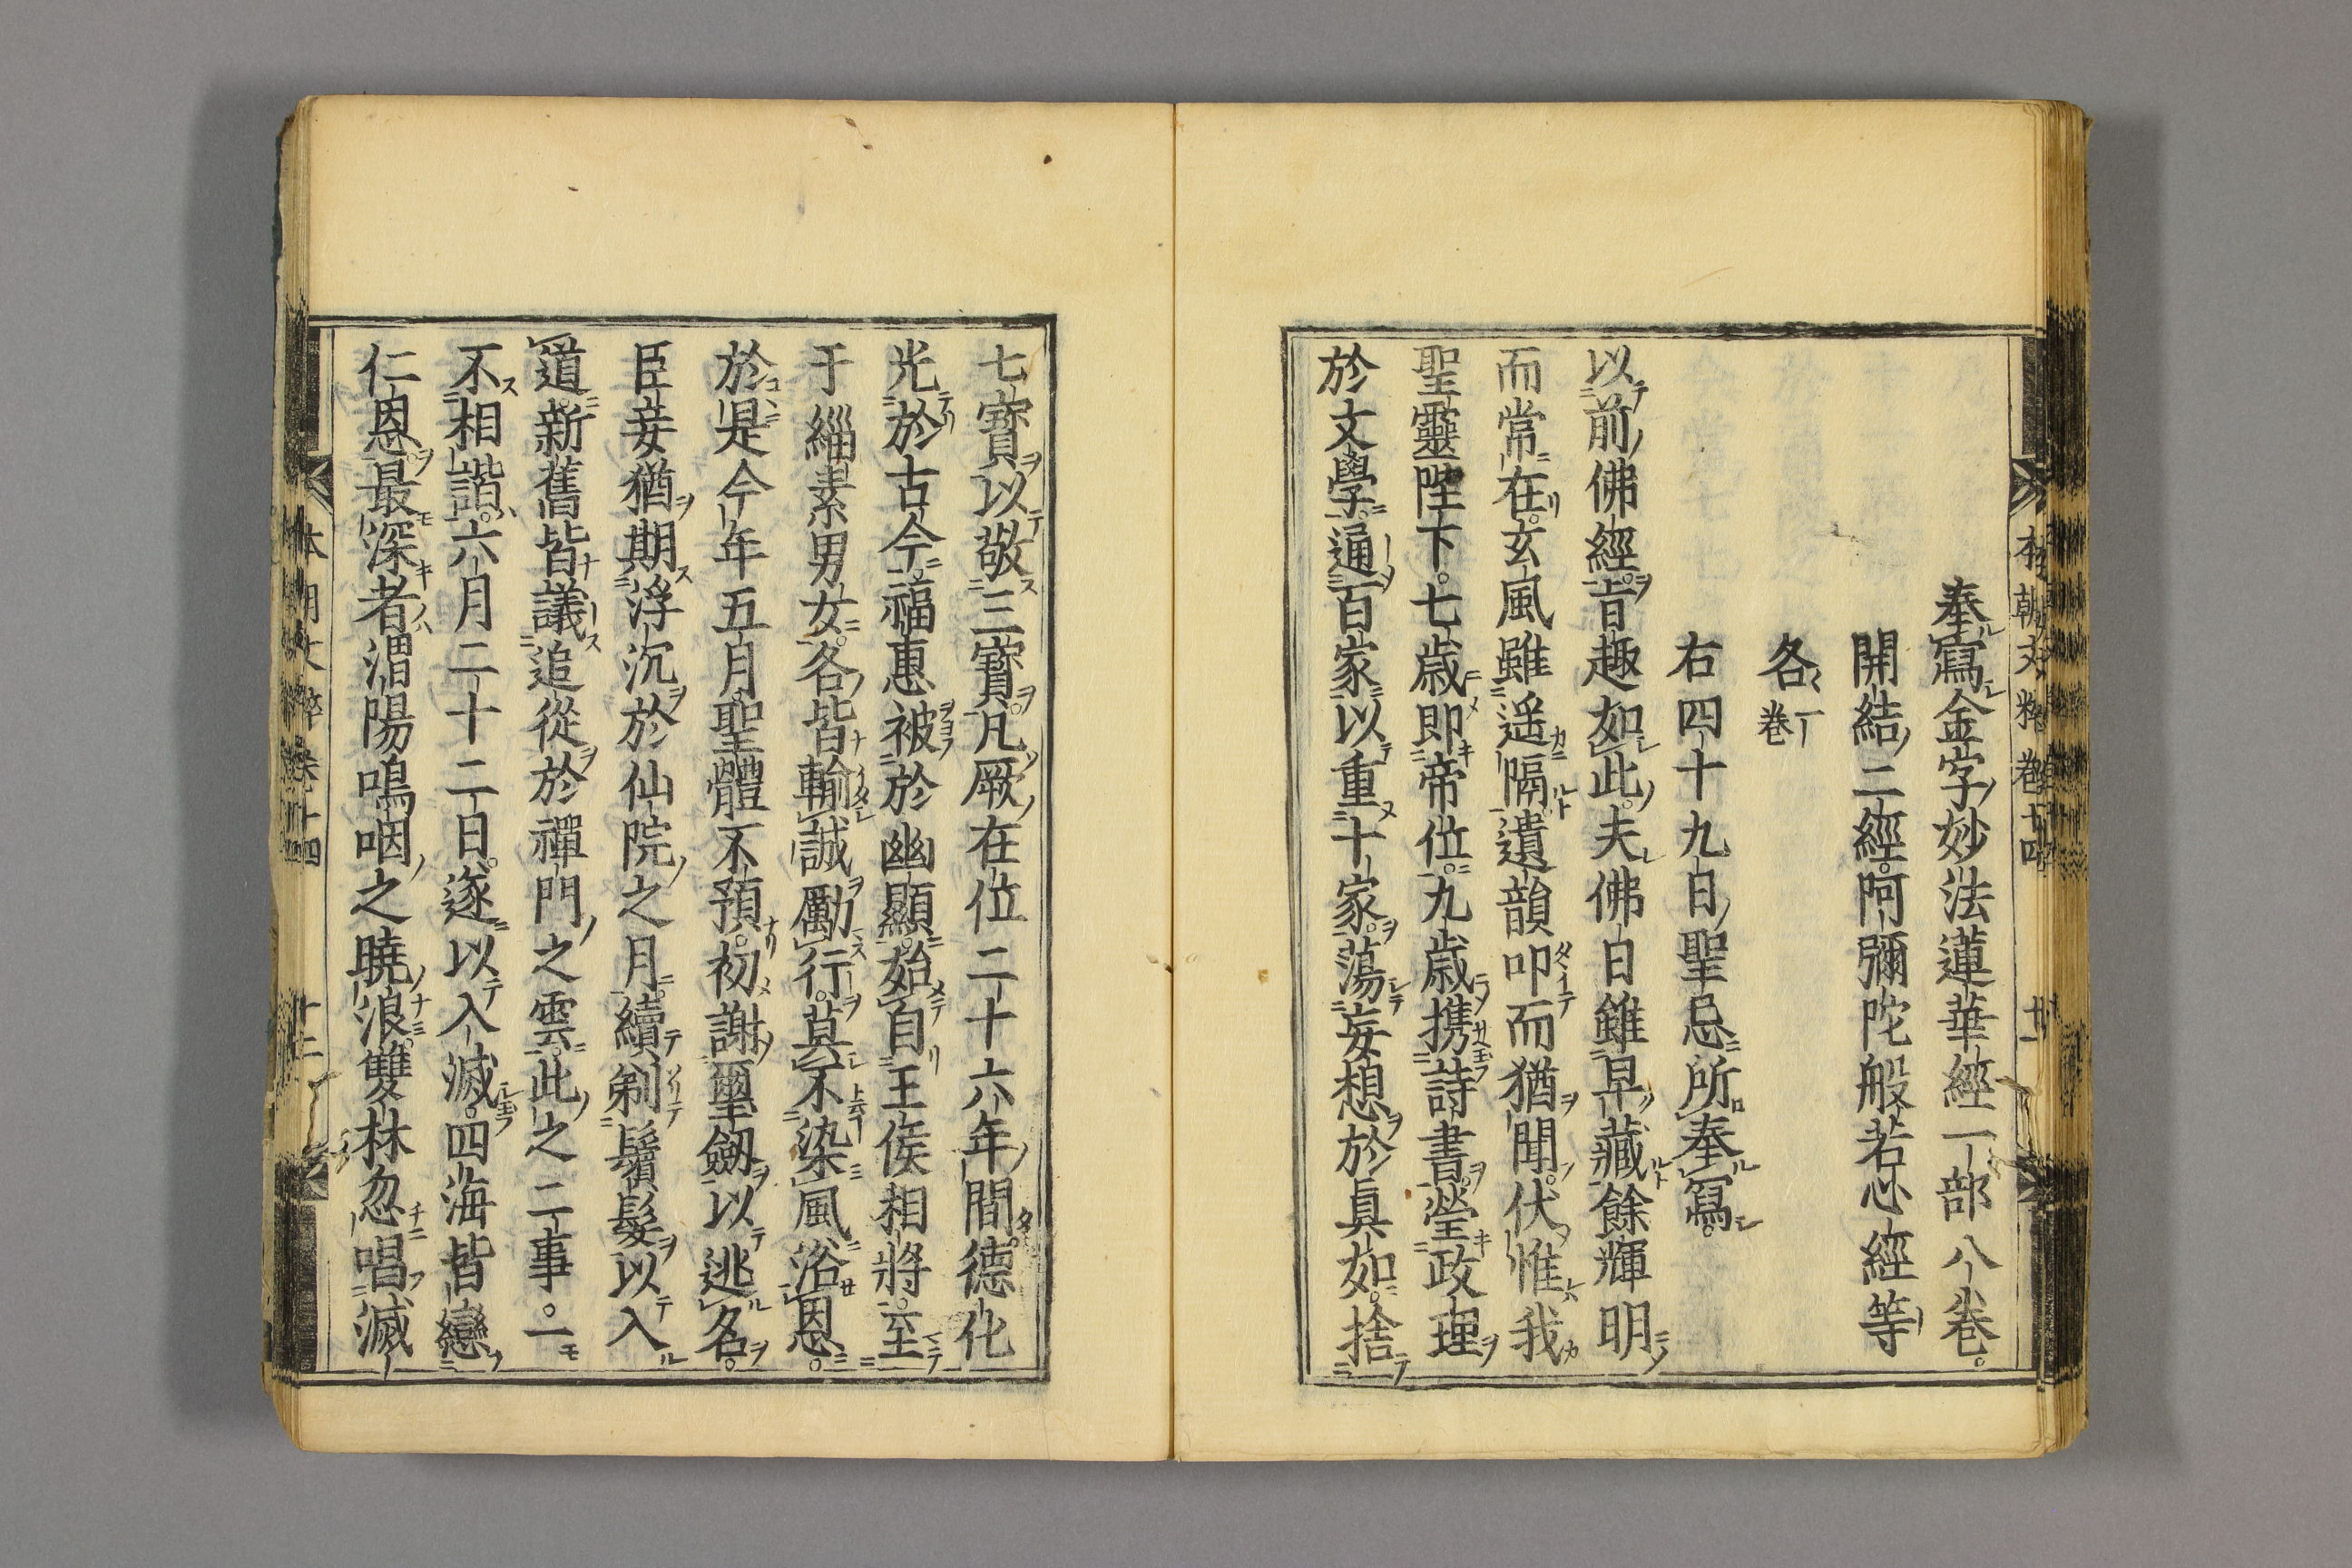 奉寫金字妙法蓮華經一部八卷。
開結二經。阿彌陀般若心經等
各一卷
右四十九日聖忌所奉寫。
以前佛經。旨趣如此。夫佛日雖早藏餘輝明
而常在。玄風雖遥隔遺韻叩而猶聞。伏惟我
聖靈陛下。七歲即帝位。九歲携詩書。瑩政理
於文學。通百家以重十家。蕩妄想於眞如。捨
七寶以敬三寶。凡厥在位二十六年間。德化
光於古今。福惠被於幽顯。始自王侯相將。至
于緇素男女。各皆輸誠勵行。莫不染風浴恩。
於是今年五月聖體不預。初謝璽劔以逃名。
臣妾猶期浮沉於仙院之月。續剃鬚髮以入
道。新舊皆議追從於禪門之雲。此之二事。一
不相諧。六月二十二日。遂以入滅。四海皆戀
仁恩。最深者渭陽嗚咽之曉浪。雙林忽唱滅
本朝文粹卷十四
十二